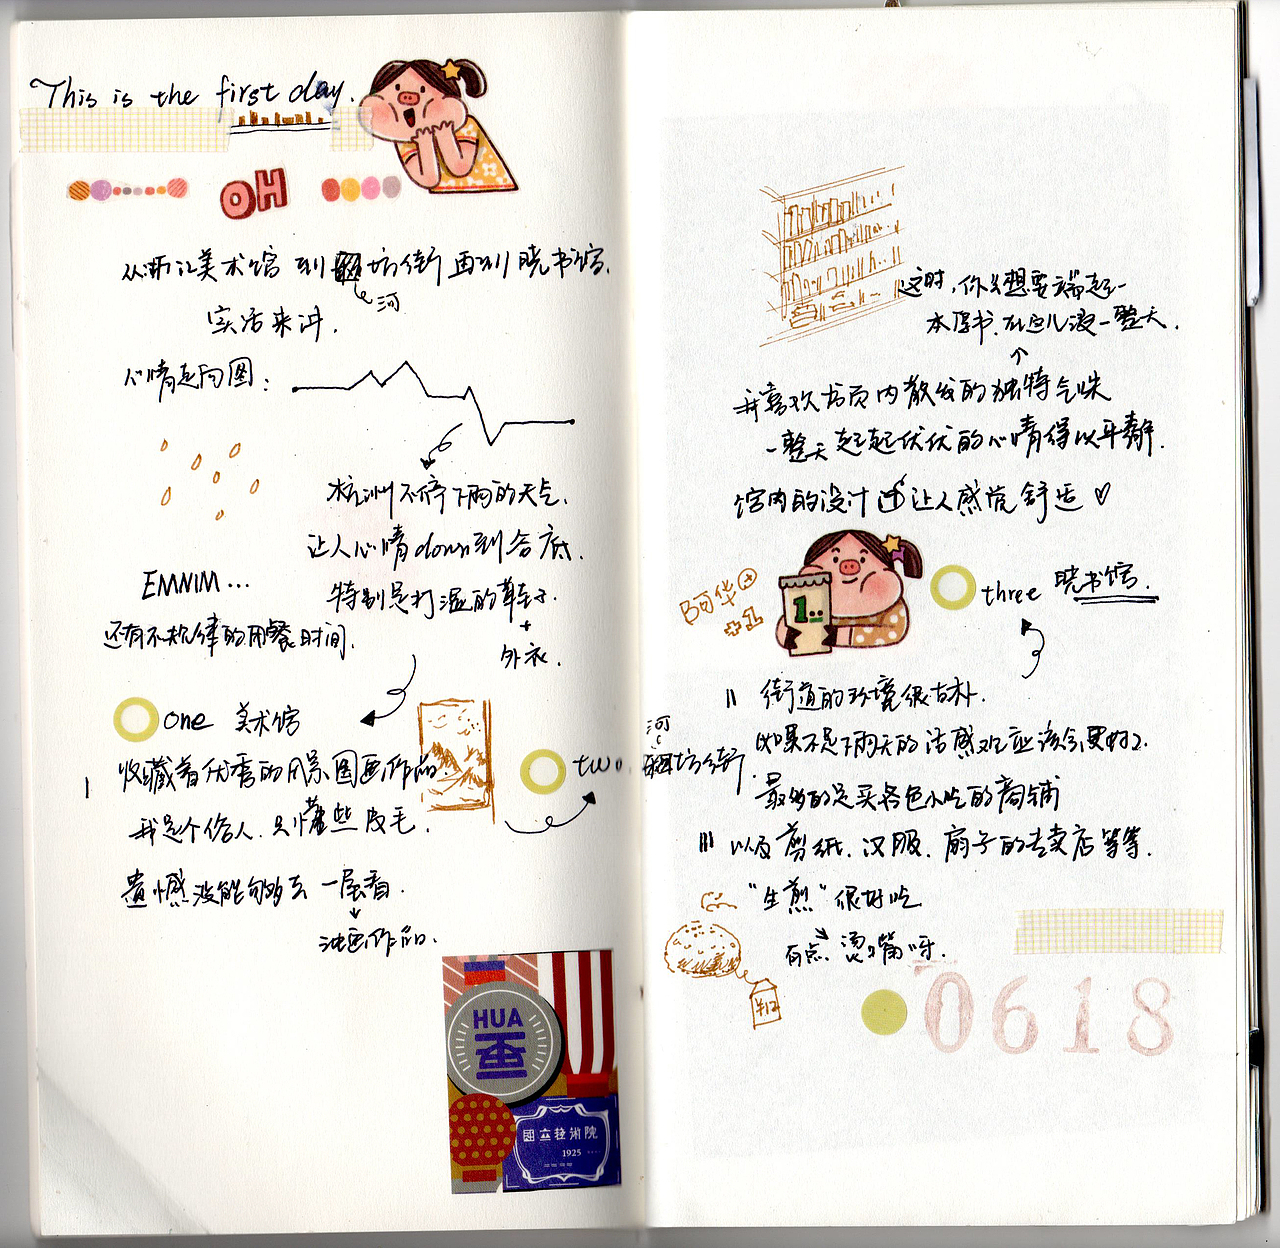 This is the first day.
OH
从浙江美术馆到 坊街再到晓书馆.
河
实话来讲.
心情走向图:
杭州不停下雨的天气.
让人心情down到谷底.
特别是打湿的鞋子.
+
外衣.
EMNIM...
还有不规律的用餐时间.
one 美术馆
收藏着优秀的风景国画作品.
我是个俗人.只懂些皮毛.
遗憾没能够去一层看.
油画作品.
two.
河
坊街
HUA
國立藝術院
1925
这时,你会想要端起一
本厚书.在这儿浪一整天.
我喜欢书页内散发的独特气味
一整天起起伏伏的心情得以平静.
馆内的设计 让人感觉舒适♡
阿华田
+1
1
three 晓书馆.
II 街道的环境很古朴.
如果不是下雨天的话感观应该会更好.
最多的是买各色小吃的商铺
III 以及剪纸.汉服.扇子的专卖店等等.
"生煎"很好吃
有点烫嘴呀.
¥12
0618